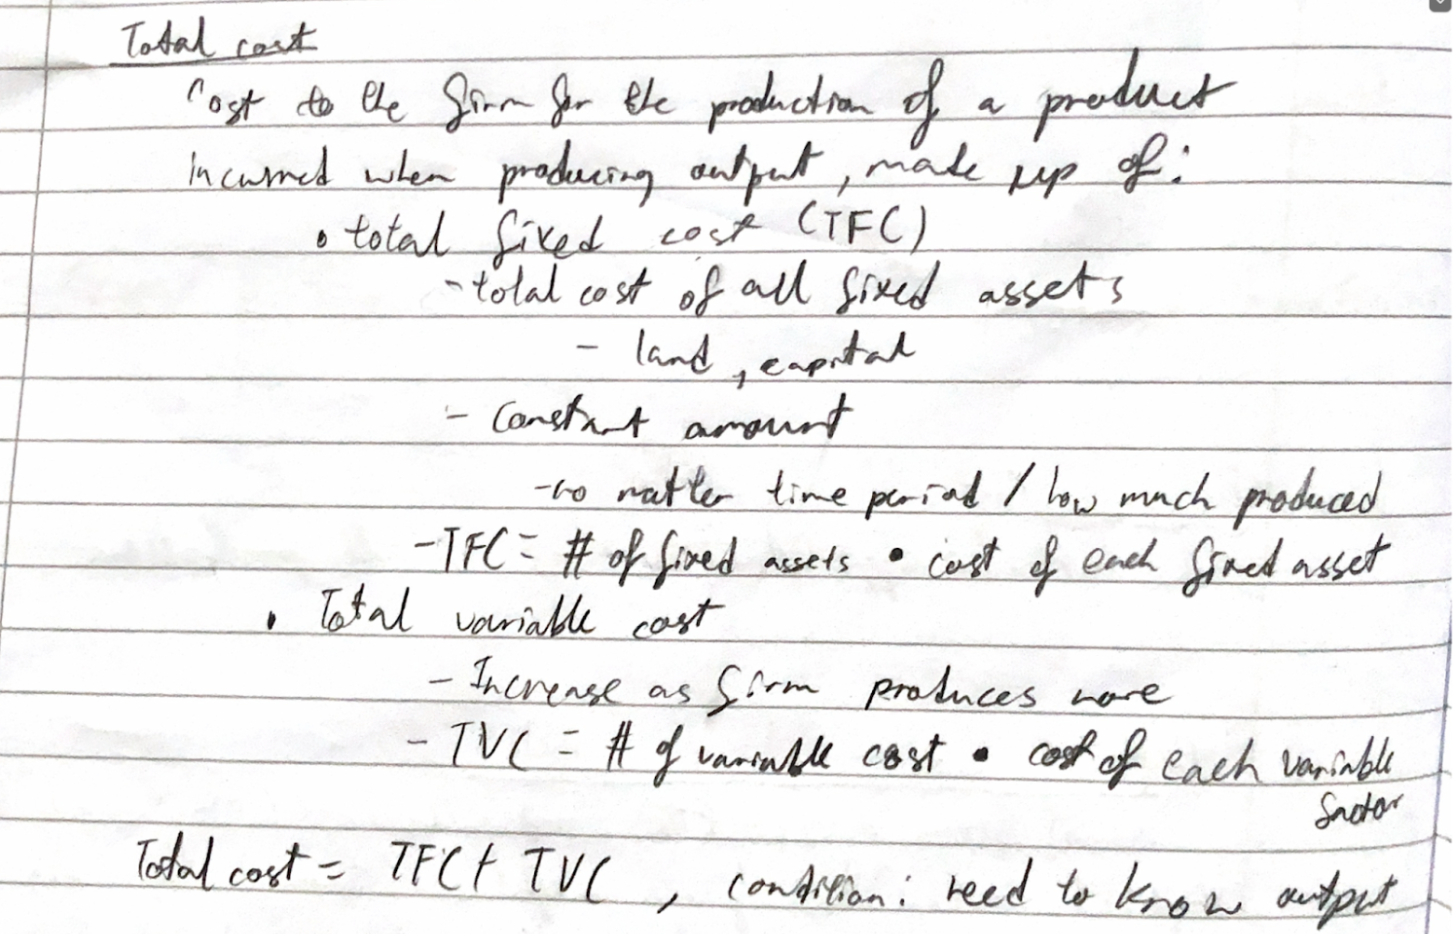 Total cost
Cost to the firm for the production of a product
incurred when producing output, made up of:
• total fixed cost (TFC)
- total cost of all fixed assets
- land, capital
- Constant amount
- no matter time period / how much produced
- TFC = # of fixed assets • cost of each fixed asset
• Total variable cost
- Increase as firm produces more
- TVC = # of variable cost • cost of each variable
factor
Total cost = TFC + TVC, condition: need to know output